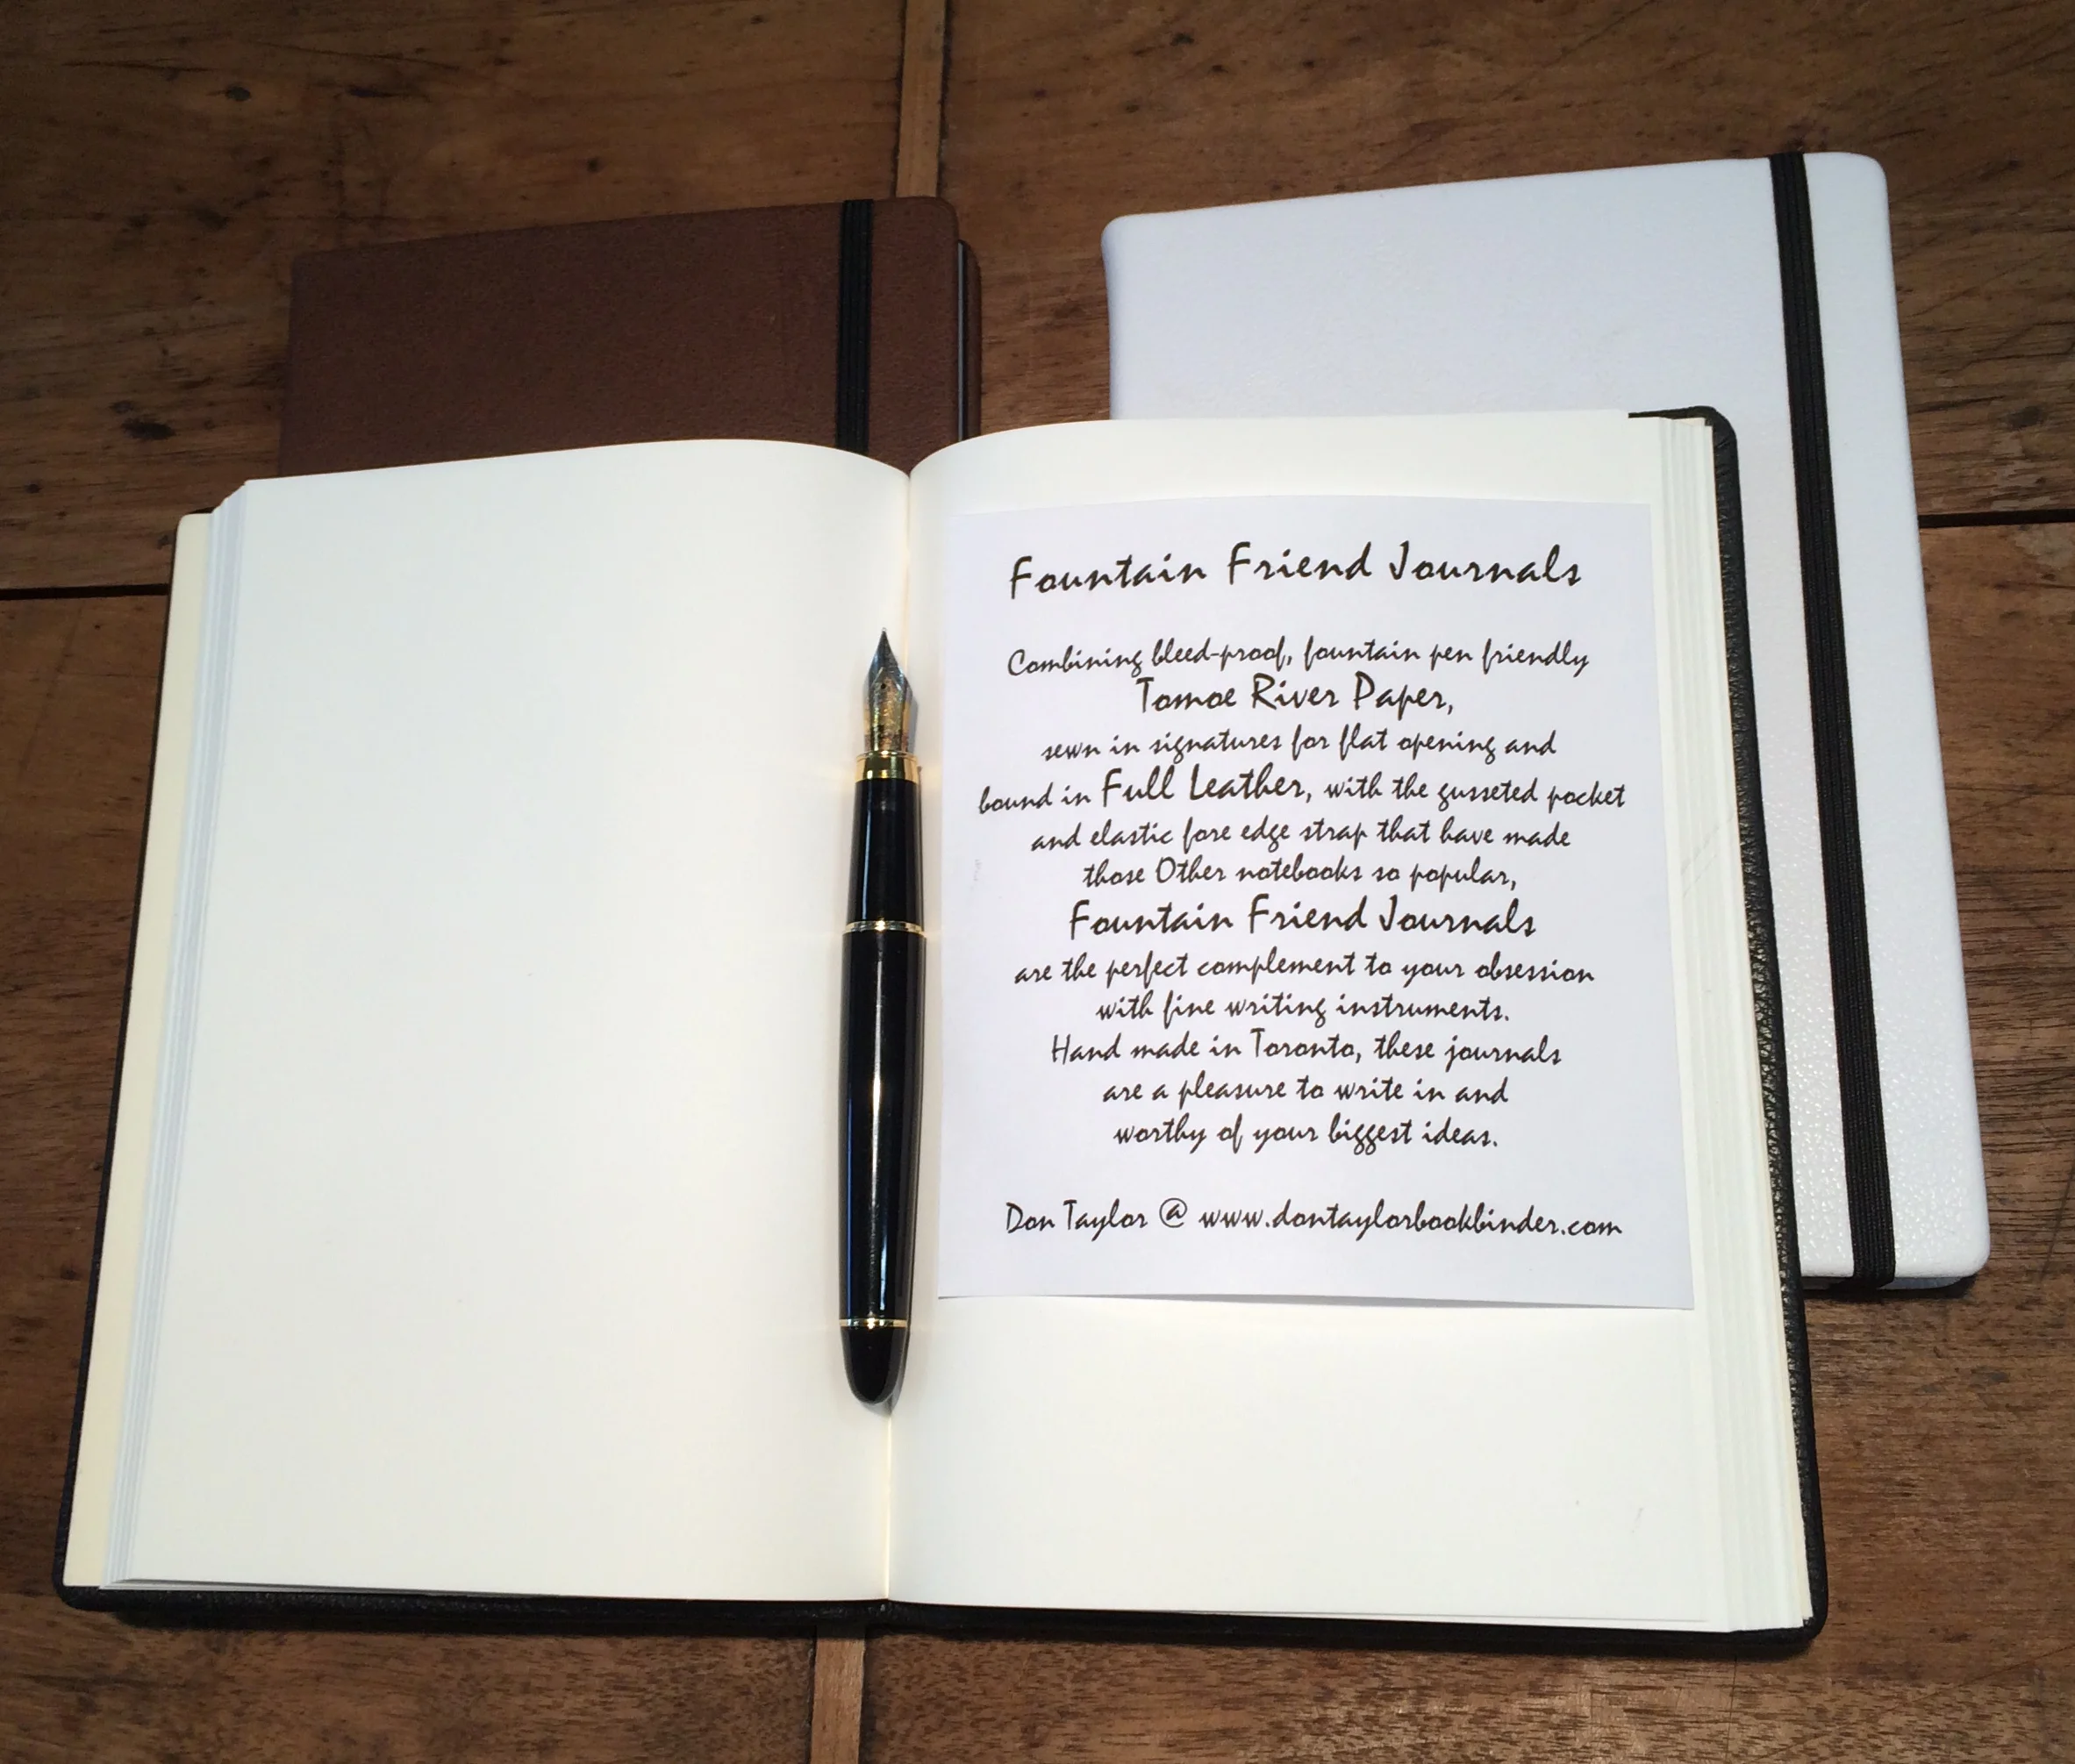 Fountain Friend Journals
Combining bleed-proof, fountain pen friendly
Tomoe River Paper,
sewn in signatures for flat opening and
bound in Full Leather, with the gusseted pocket
and elastic fore edge strap that have made
those Other notebooks so popular,
Fountain Friend Journals
are the perfect complement to your obsession
with fine writing instruments.
Hand made in Toronto, these journals
are a pleasure to write in and
worthy of your biggest ideas.
Don Taylor @ www.dontaylorbookbinder.com